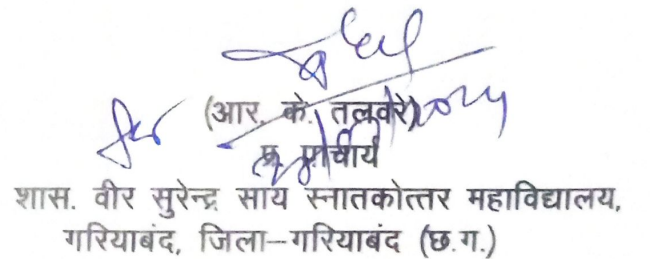 (आर. के. तलवरे)
प्र. प्राचार्य
शास. वीर सुरेन्द्र साय स्नातकोत्तर महाविद्यालय,
गरियाबंद, जिला–गरियाबंद (छ.ग.)